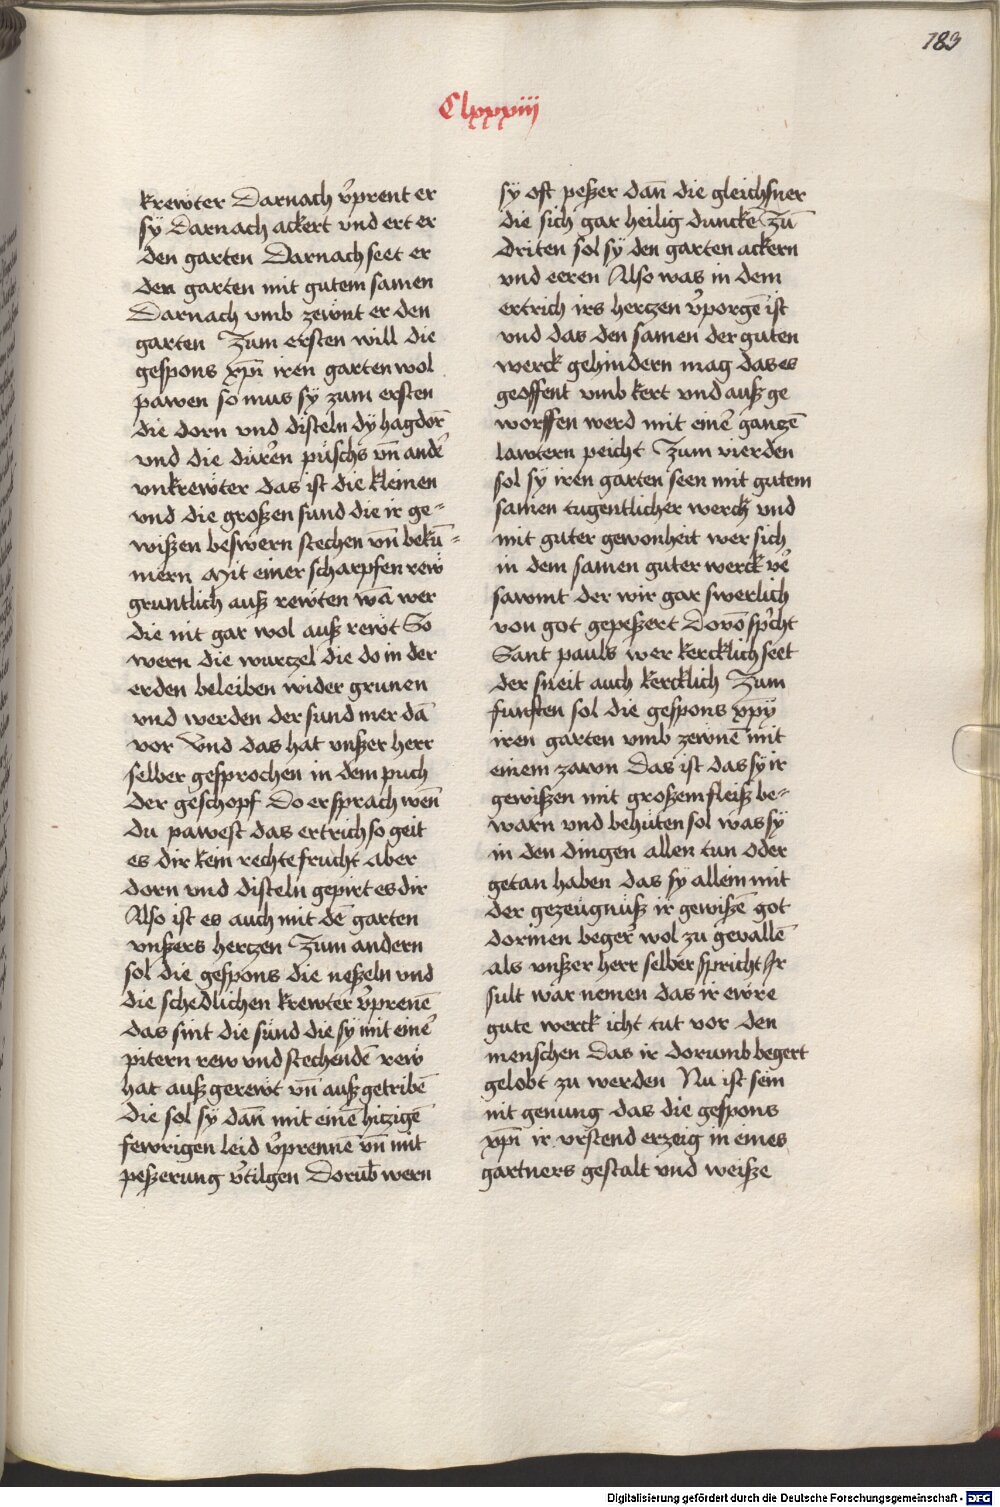 183
Clxxxiij
krewter Darnach v̉prent er
sÿ Darnach ackert vnd ert er
den garten Darnach seet er
den garten mit gutem samen
Darnach vmb zewnt er den
garten Zum ersten will die
gespons xp̄i iren garten wol
pawen so mus sy zum ersten
die dorn vnd disteln dÿ hagdorn̄
vnd die dürren püschs vn̄ andẻ
vnkrewter das ist die kleinen
vnd die großen sund die ir ge⸗
wißen beswern stechen vn̄ bekū⸗
mern Mit einer scharpfen rew
gruntlich auß rewten wā wer
die nit gar wol auß rewt So
wern die wurczel die do in der
erden beleiben wider grunen
vnd werden der sund mer dā
vor Vnd das hat vnßer herr
selber gesprochen in dem puch
der geschopf Do er sprach wen̄
du pawest das ertrich so geit
es dir kein rechte frucht aber
dorn vnd disteln gepirt es dir
Also ist es auch mit dē garten
vnßers herczen Zum andern
sol die gespons die neßeln vnd
die schedlichen krewter v̉prenē
das sint die sünd die sÿ mit einẻ
pitern rew vnd stechendē rew
hat auß gerewt vn̄ auß getribē
die sol sÿ dan̄ mit einē hiczigē
fewrigen leid v̉prennē vn̄ mit
peßerung v̉tilgen Dorūb wern
sÿ oft peßer dan̄ die gleichsner
die sich gar heilig dunckē Zū
driten sol sÿ den garten ackern
vnd eeren Also was in dem
ertrich irs herczen v̉porgē ist
vnd das den samen der guten
werck gehindern mag das es
geoffent vmb kert vnd auß ge
worffen werd mit einẻ ganczē
lawtern peicht Zum vierden
sol sÿ iren garten seen mit gutem
samen tugentlicher werck vnd
mit guter gewonheit wer sich
in dem samen guter werck vẻ
sawmt der wir gar swerlich
von got gepeßert Dovō sp̉cht
Sant pauls wer kercklich seet
der sneit auch kercklich Zum
funften sol die gespons xpÿ
iren garten vmb zewnē mit
einem zawn Das ist das sÿ ir
gewißen mit großem fleiß be⸗
warn vnd behüten sol was sÿ
in den dingen allen tun oder
getan haben das sÿ allein mit
der gezeügnüß ir gewißē got
dorinen begeṙ wol zu gevallē
als vnßer herr selber spricht Ir
sult war nemen das ir ewre
gute werck icht tut vor den
menschen Das ir dorumb begert
gelobt zu werden Nu ist sein
nit genung das die gespons
xp̄i ir vrstend erzeig in eines
gartners gestalt vnd weiße
Digitalisierung gefördert durch die Deutsche Forschungsgemeinschaft - DFG